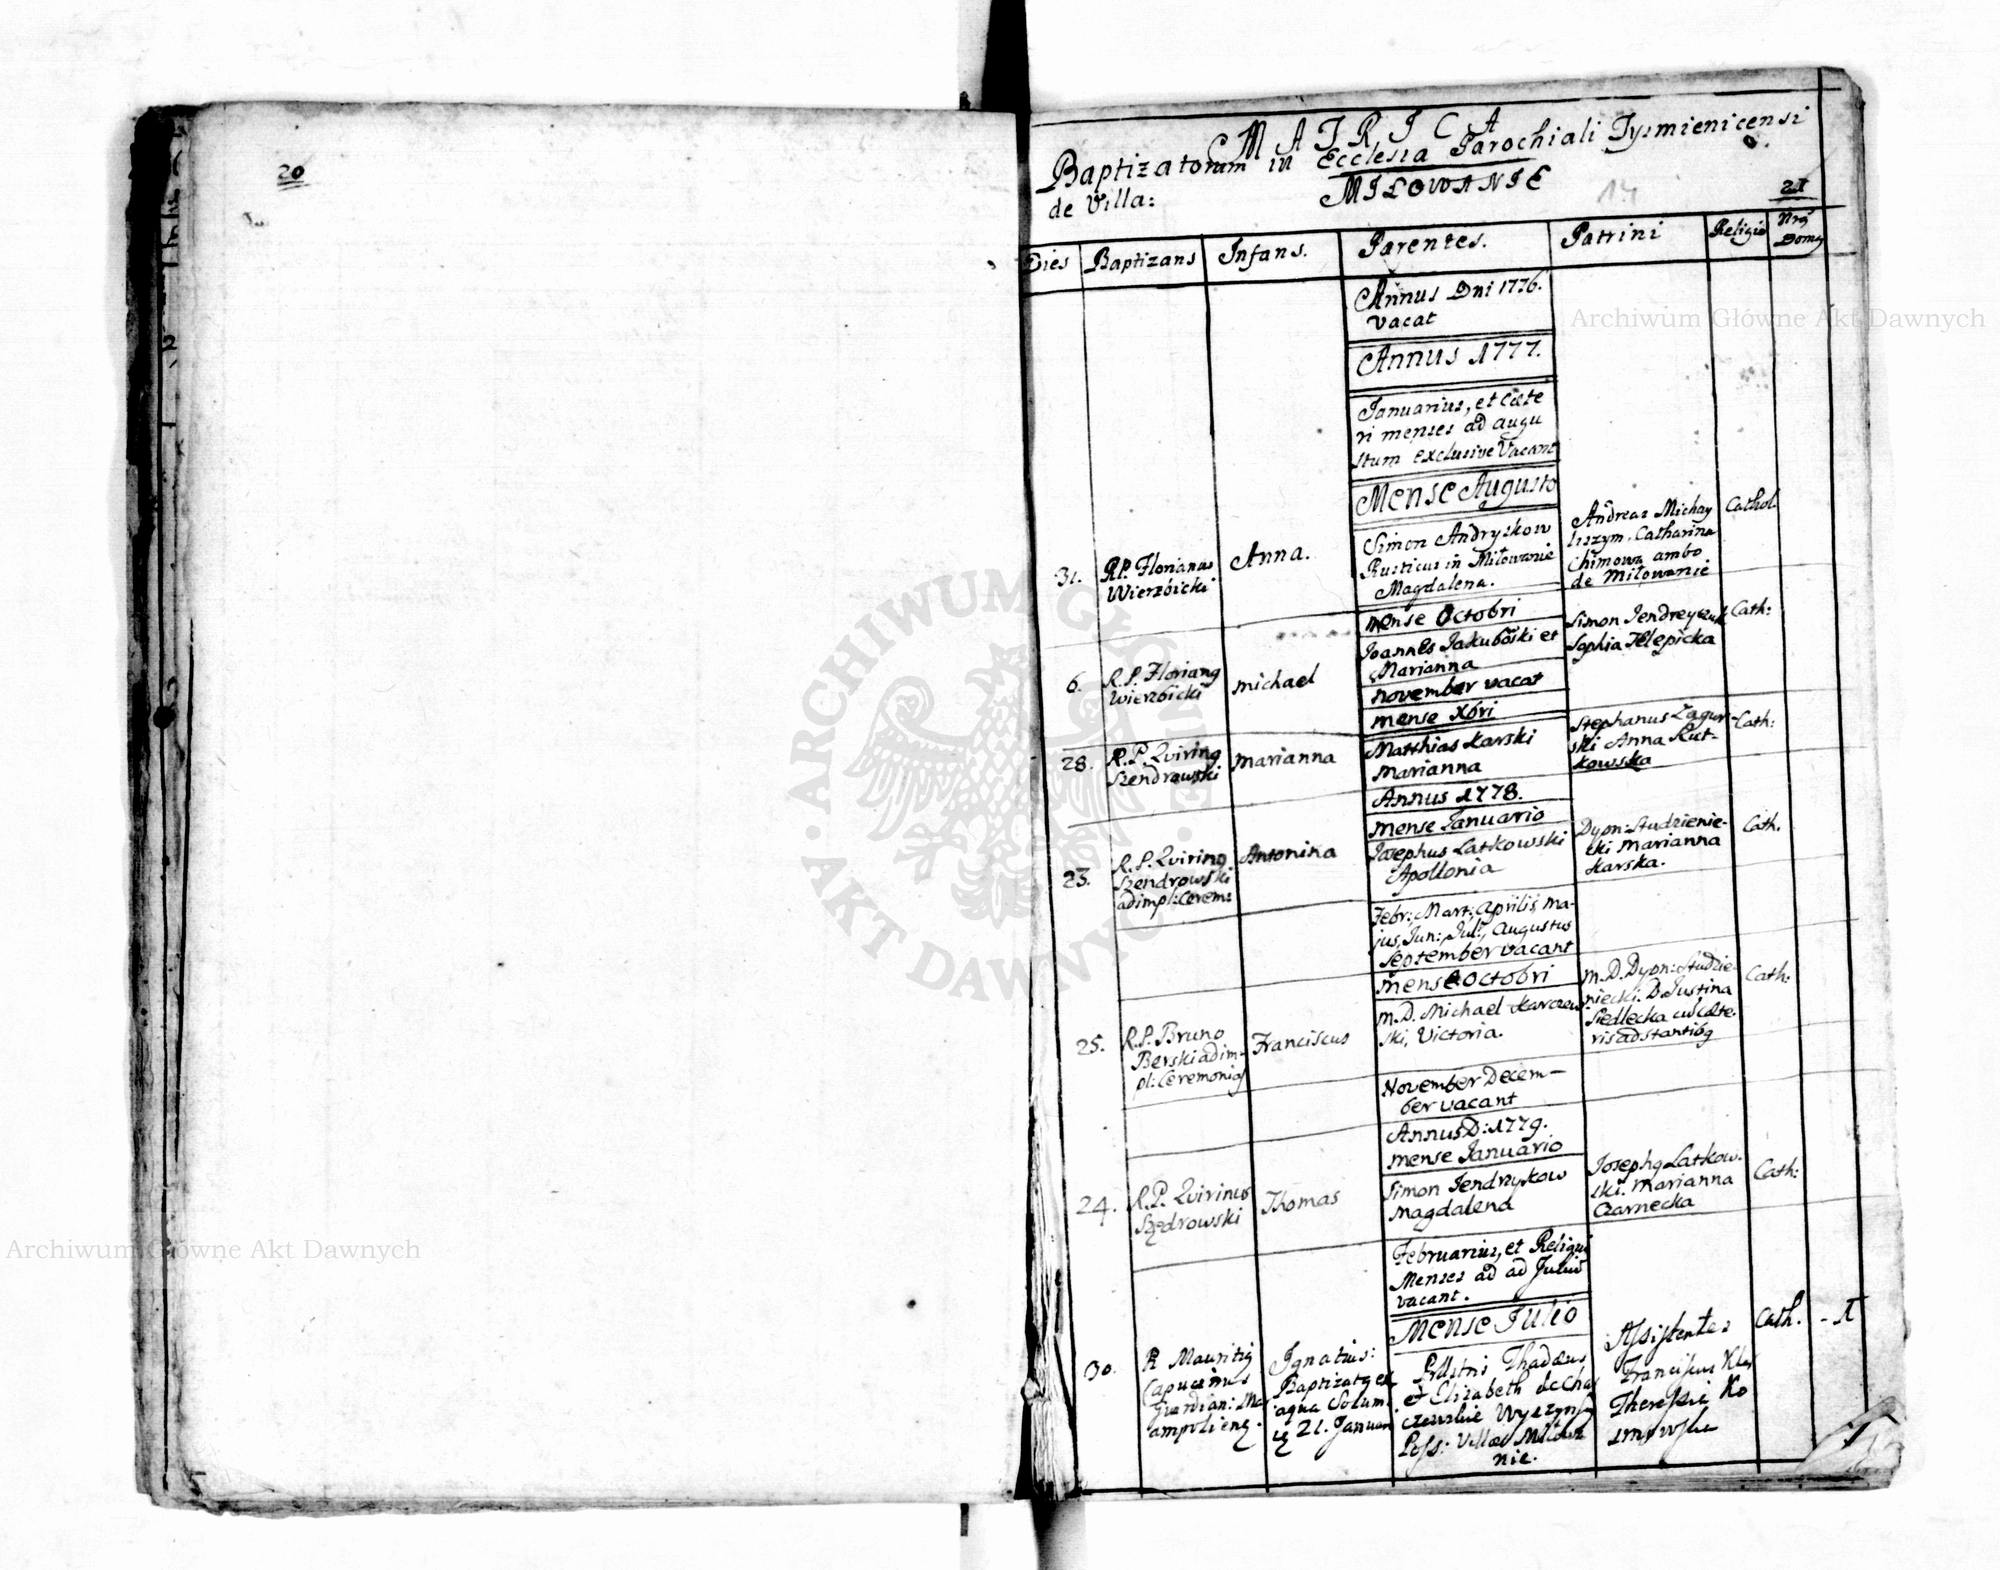 20
MATRICA
Baptizatorum in Ecclesia Parochiali Tysmienicensi
de Villa: MILOWANIE
14
21
Dies Baptizans Infans. Parentes. Patrini Religio Nrg Domg
Annus Dni 1776.
vacat
Annus 1777.
Januarius, et Cæte
ri menses ad augu
stum exclusive Vacant
Mense Augusto
31. RP. Florianus
Wierzbicki
Anna.
Simon Andryskow
Rusticus in Miłowanie
Magdalena.
Andreas Michay
liszym. Catharina
Chimowa ambo
de Miłowanie
Cathol.
mense Octobri
6. R.P. Floriang
Wierzbicki
Michael
Joannes Jakubõski et
Marianna
Simon Jendreyczuk
Sophia Telepicka
Cath:
november vacat
mense Xbri
28. R.P. Quiring
Szendrowski
Marianna
Matthias Karski
Marianna
Stephanus Zagur-
ski Anna Rut-
kowska
Cath:
Annus 1778.
mense Januario
23. R.P. Quiring
Szendrowski
adimpl: Cerem:
Antonina
Josephus Latkowski
Apollonia
Dyon: Studzienie-
cki Marianna
Karska.
Cath.
Febr: Mart: Aprilis, Ma-
jus, Jun: Jul: Augustus
September vacant
mense Octobri
25. R.P. Bruno
Berski adim-
pl: Ceremonias
Franciscus
M.D. Michael Karczew
ski, Victoria.
M.D. Dyon: Studzie-
niecki. D. Justina
Siedlecka cũ Cæte-
ris adstantibg
Cath:
November Decem-
ber vacant
Annus D: 1779.
mense Januario
24. R.P. Quirinus
Szędrowski
Thomas
Simon Jendrzykow
Magdalena
Josephg Latkow-
ski. Marianna
Czarnecka
Cath:
Februarius, et Reliqui
Menses ad ad Juliũ
vacant.
Mense Julio
30. R Mauritig
Capucinus
guardian: Ma
ampolieng.
Ignatius:
Baptizatg ex
aqua Solum
21. Januar
Thadæus,
et Elizabeth de Cha
Wyszyns
Poss: Villæ Miłowa
nie.
Assistentes
Franciscus
Cath. - 1